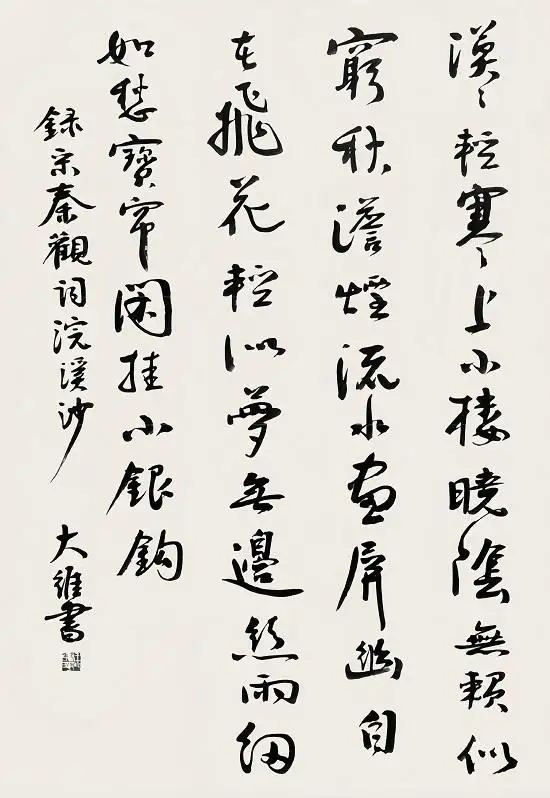 漠〻輕寒上小樓曉陰無賴似
窮秋澹煙流水畫屏幽自
在飛花輕似夢無邊絲雨細
如愁寶帘閑挂小銀鈎
録宋秦觀詞浣溪沙
大維書